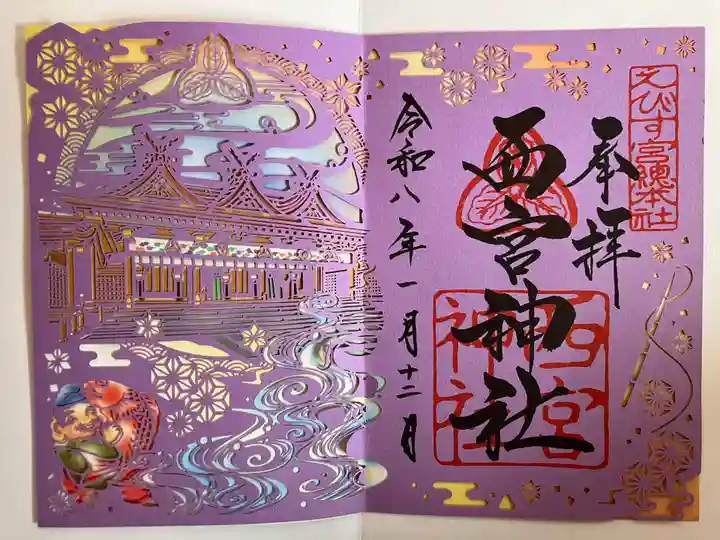 えびす宮総本社
奉拝
西宮神社
西宮
神社
令和八年一月十二日